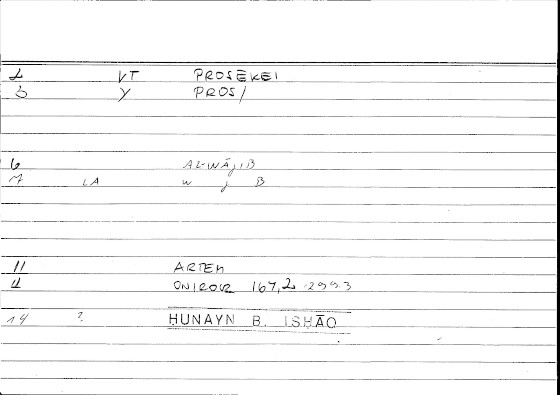 2 VT PROSĒKEI
3 Y PROS/
6 AL-WĀJIB
7 LA W J B
11 ARTEM
ONIROCR 167,2
14 ? HUNAYN B. ISHĀQ